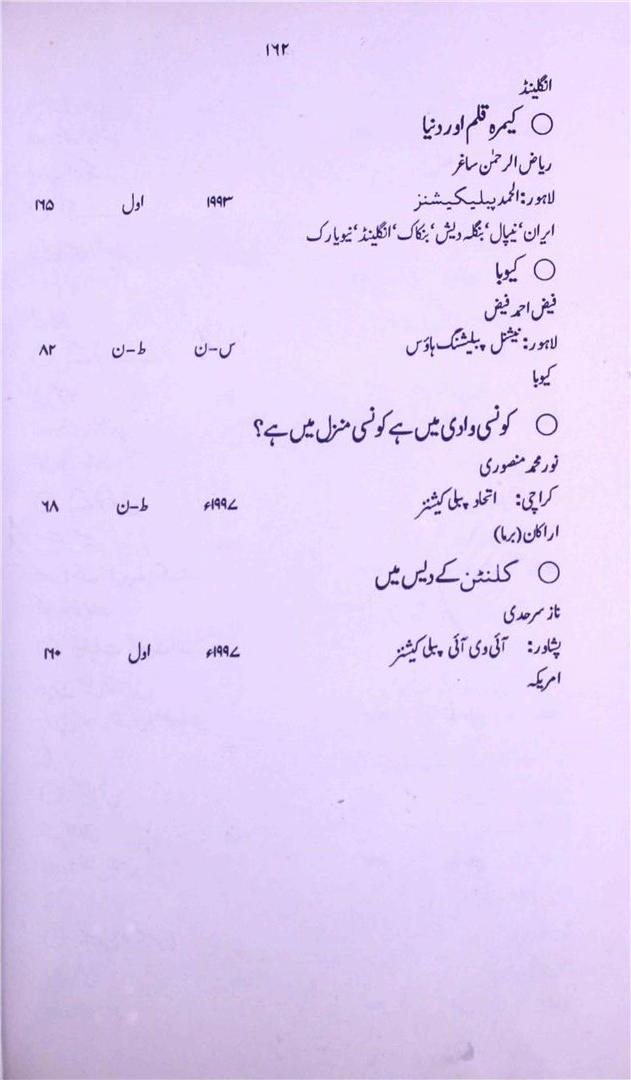 ۱۶۲
انگلینڈ
○ کیمرہ قلم اور دنیا
ریاض الرحمٰن ساغر
لاہور: الحمد پبلیکیشنز ۱۹۹۳ اول ۱۶۵
ایران‘ نیپال‘ بنگلہ دیش‘ بنکاک‘ انگلینڈ‘ نیویارک
○ کیوبا
فیض احمد فیض
لاہور: نیشنل پبلیشنگ ہاؤس س-ن ط-ن ۸۲
کیوبا
○ کونسی وادی میں ہے کونسی منزل میں ہے؟
نور محمد منصوری
کراچی: اتحاد پبلی کیشنز ۱۹۹۷ء ط-ن ۶۸
اراکان (برما)
○ کلنٹن کے دیس میں
ناز سرحدی
پشاور: آئی وی آئی پبلی کیشنز ۱۹۹۷ء اول ۱۶۰
امریکہ